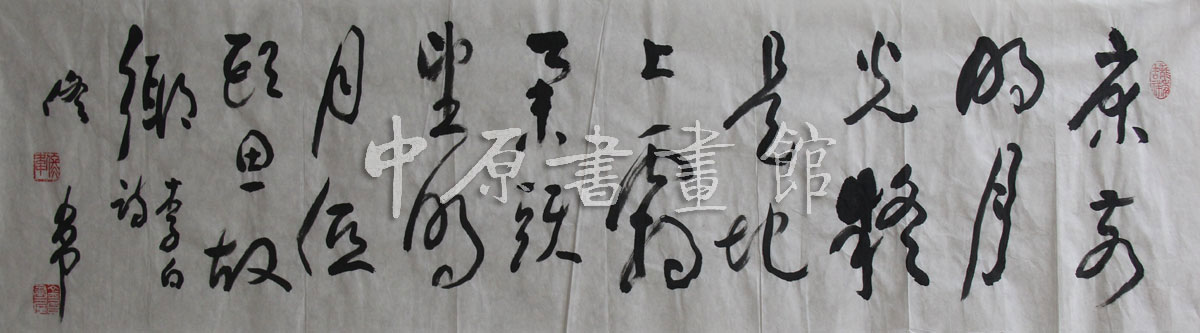 床前
明月
光疑
是地
上霜
舉頭
望明
月低
頭思故
鄉
李白
詩
中原書畫館